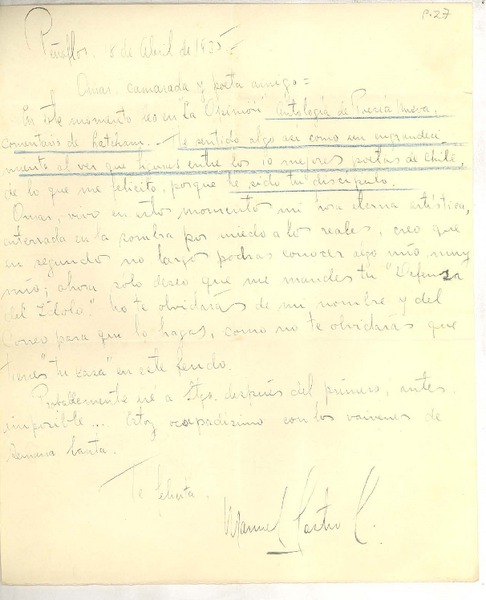 P.27
Peñaflor, 5 de Abril de 1935.-
Omar, camarada y poeta amigo =
En este momento leo en "La Opinión" Antología de Poesía Nueva,
comentario de Latcham. - He sentido algo así como un engrandeci-
miento al ver que figuras entre los 10 mejores poetas de Chile,
de lo que me felicito, porque he sido tu discípulo.
Omar, vivo en estos momentos mi hora eterna artística,
internada en la sombra por miedo a lo real es, creo que
en segundo no largo podrás conocer algo mío, muy
mío; ahora sólo deseo que me mandes tu "Defensa
del Ídolo." No te olvidarás de mi nombre y del
Correo para que lo hagas, como no te olvidarás que
tienes "tu casa" en este fundo.
Probablemente iré a Stgo. después del primero, antes
imposible... Estoy ocupadísimo con los vaivenes de
Semana Santa.
Te felicita,
Manuel Castro C.